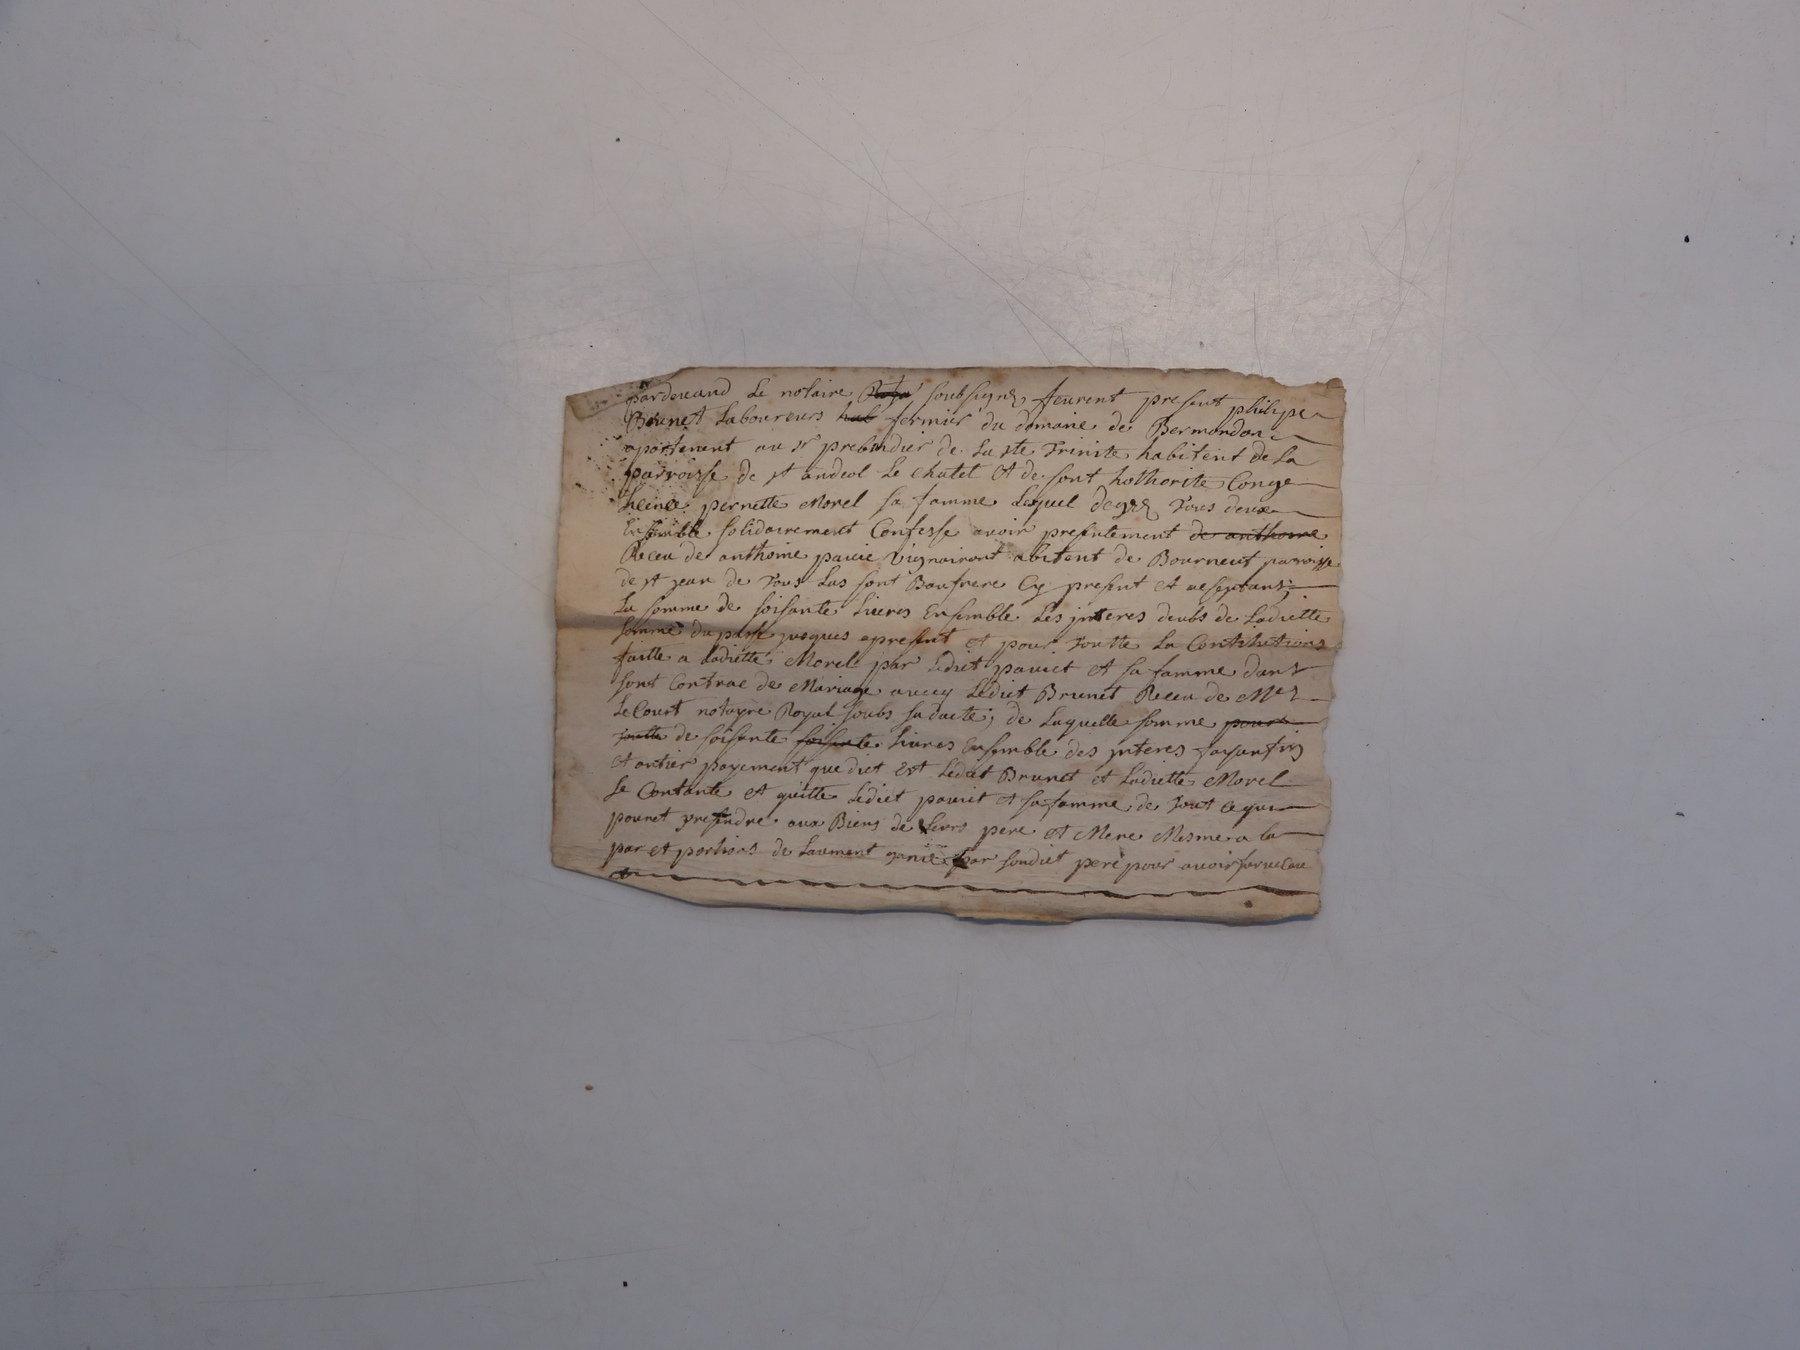 pardeuand Le notaire Royal soubsignes feurent present philipe
Brunet Laboureurs hab fermier du domaine de Bermondon
apartenent au sr prebendier de La ste Trinite habitent de La
parroisse de st andeol Le chatel et de sont hothorite Conge
pernette Morel sa famme Lequel degres Tous deux
Ensemble solidairement Confesse avoir presentement de anthoine
Receu de anthoine pavie vigniairont abitent de Bourneuf parroisse
de st jean de Tous Las sont Baufrere Cy present et aseptans
La somme de soisante Livres Ensemble Les jnteres deubs de Ladiette
somme du passe jusques apresent et pour Toutte La Constitutions
faitte a Ladiette Morel par Lediet paviet et sa famme dans
sont Contrac de Mariage avecq Lediet Brunet Receu de Me
Le Court notayre Royal soubs sa datte; de Laquelle somme pour
de soisante soisante Livres Ensemble des jnteres
et antier payement que diet Est Lediet Brunet et Ladiette Morel
se Contante et quitte Lediet paviet et sa famme de Tout ce qui
pouret pretendre aux Biens de Leurs pere et Mere Mesme a la
par et portions de Laument par sondiet pere pour avoir